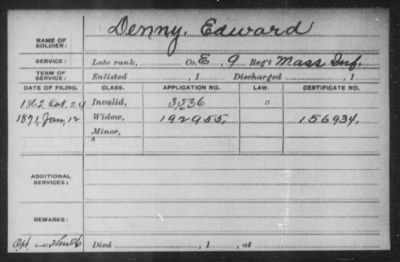 Denny, Edward
NAME OF SOLDIER:
SERVICE: Late rank, Co. E, 9 Reg't Mass Inf.
TERM OF SERVICE: Enlisted , 1 Discharged , 1
DATE OF FILING. CLASS. APPLICATION NO. LAW. CERTIFICATE NO.
1862, Oct. 24 Invalid, 3536
1871, Jan, 12 Widow, 192955, 156934,
Minor,
ADDITIONAL SERVICES:
REMARKS:
Died , 1 , at